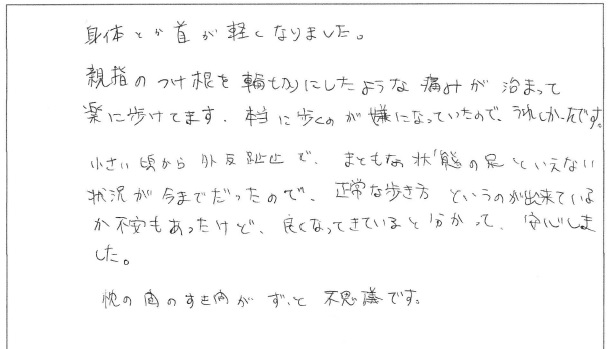 身体とか首が軽くなりました。
親指のつけ根を輪切りにしたような痛みが治まって
楽に歩けてます。本当に歩くのが嫌になっていたので、うれしかったです。
小さい頃から外反母趾で、まともな状態の足といえない
状況が今までだったので、正常な歩き方というのが出来ている
か不安もあったけど、良くなってきていると分かって、安心しま
した。
枕の間のすき間がずっと不思議です。